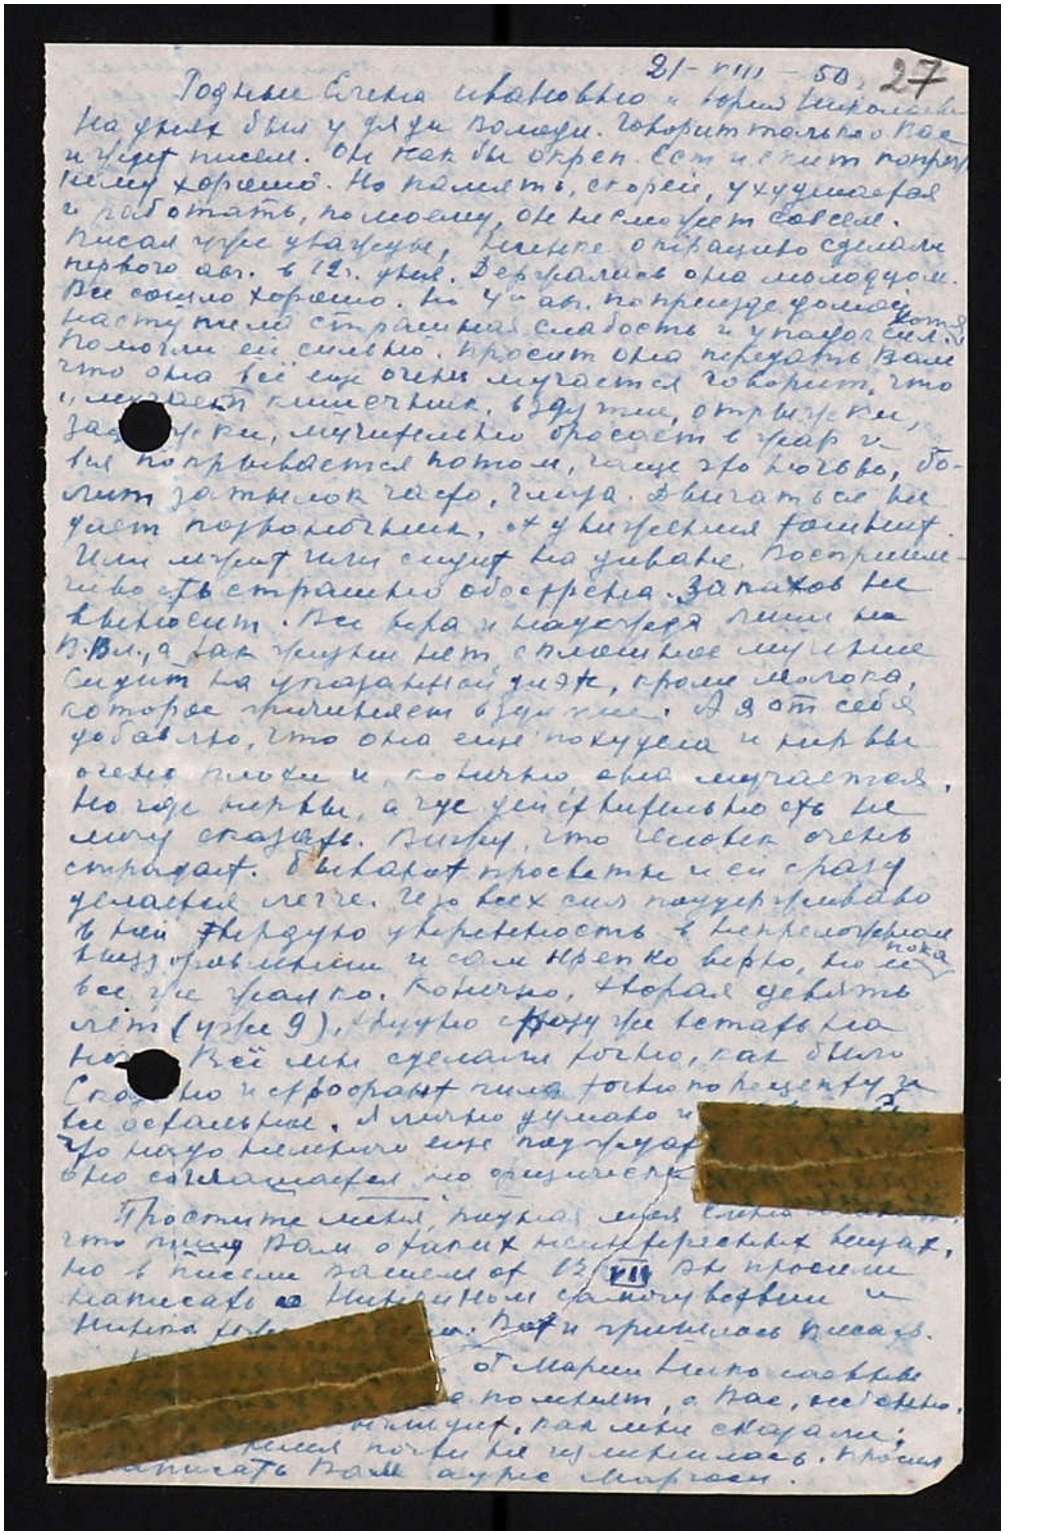 21 - VIII - 50. 27
Родные Елена Ивановна и Юрий Николаев
На днях был у дяди Володи. Говорит только о Вас
и ждёт писем. Он как бы окреп. Ест и спит по преж
нему хорошо. Но память, скорей, ухудшается
и работать, по моему, он не сможет совсем.
Писал уже дважды, Нинке операцию сделали
первого авг. в 12 ч. дня. Держалась она молодцом.
Все сошло хорошо. Но 4го авг. по приезде домой
наступила страшная слабость и упадок сил. хотя
помогли ей сильно. Просит она передать Вам
что она всё ещё очень мучается говорит, что
"мучает кишечник, вздутие, отрыжки,
мучительно бросает в жар и
вся покрывается потом, чаще это ночью, бо-
лит затылок часто, глаза. Двигаться не
дает позвоночник, от движения тошнит.
Или лежит или сидит на диване. Восприим-
чивость страшно обострена. Запахов не
выносит. Вся вера и надежда лишь на
В.Вл., а так жизни нет, сплошное мучение
Сидит на указанной диэте, кроме молока,
которое причиняет вздутие. А я от себя
добавлю, что она еще похудела и нервы
очень плохи и, конечно она мучается,
но где нервы, а где действительность не
могу сказать. Вижу, что человек очень
страдает. Бывают просветы и ей сразу
делается легче. Изо всех сил поддерживаю
в ней твердую уверенность в непреложном
выздоровлении и сам крепко верю, но ... пока
все же жалко. Конечно, хворая девять
лет (уже 9), трудно сразу же встать на
Всё мы сделали точно, как было
и пила точно по рецепту и
все остальное. Я лично думаю и
что надо немного еще подождать
она соглашается но физически
Простите меня, родная моя Елена
что пишу Вам о таких неинтересных вещах,
но в письме вашем от 12/VII Вы просили
написать о Нинкином самочувствии и
Нинка Вот и пришлось писать.
от Марии Николаевны
помнят, о Вас,
как мне сказали,
почти не изменилась. Просил
написать Вам адрес Маргоси.